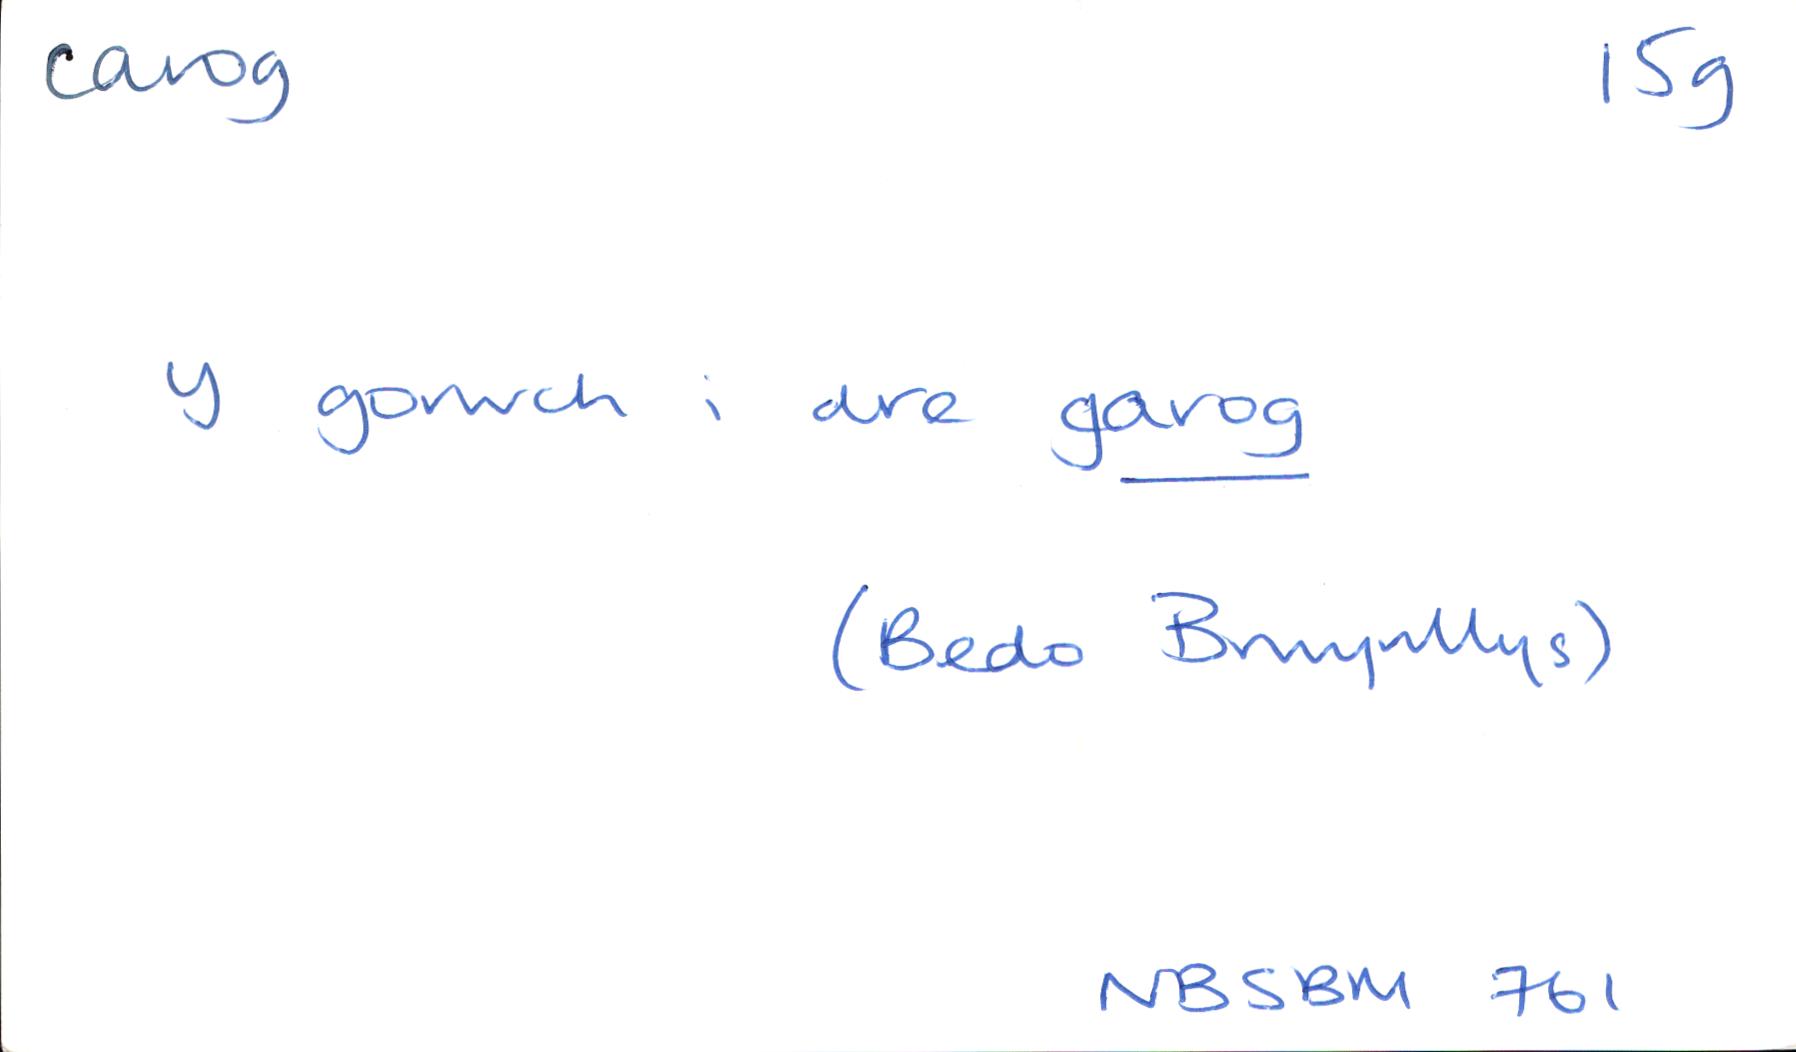 carog 15g
y gorwch i dre garog
(Bedo Brwynllys)
NBSBM 761